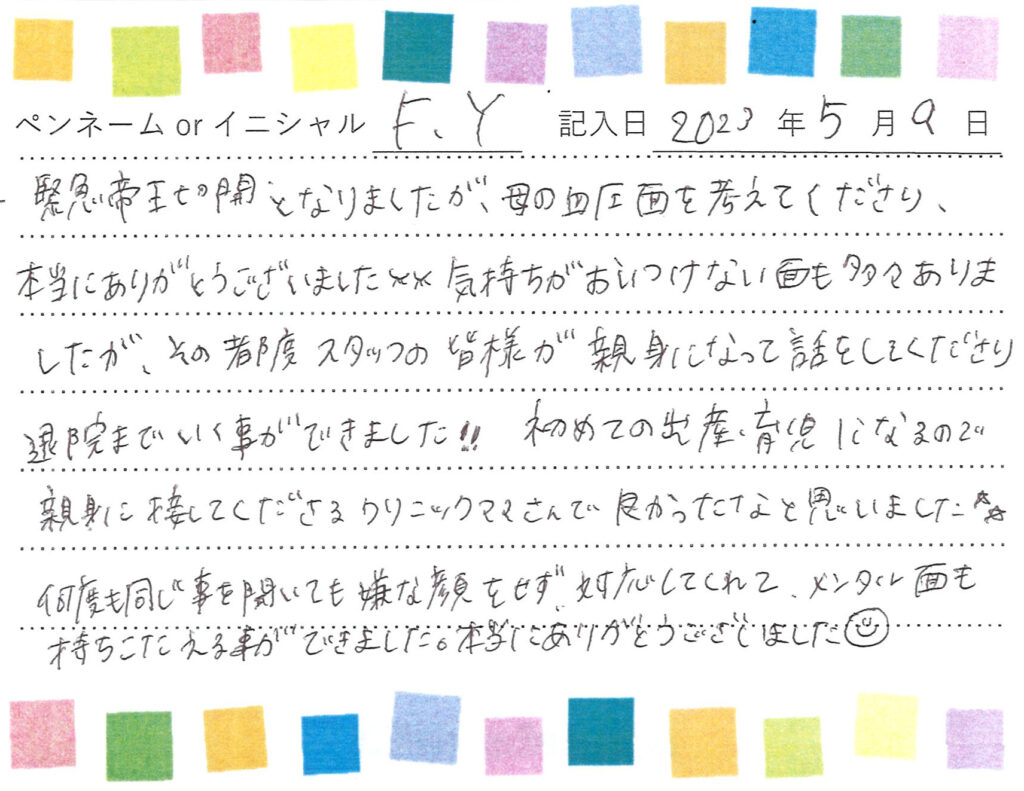 ペンネーム or イニシャル F、Y 記入日 2023 年 5 月 9 日
緊急帝王切開となりましたが、母の血圧面を考えてくださり、
本当にありがとうございました** 気持ちがおいつけない面も多々ありま
したが、その都度スタッフの皆様が親身になって話をしてくださり
退院までいく事ができました!! 初めての出産・育児になるので
親身に接してくださるクリニックママさんで良かったなと思いました☆☆
何度も同じ事を聞いても嫌な顔をせず、対応してくれて、メンタル面も
持ちこたえる事ができました。本当にありがとうございました☺